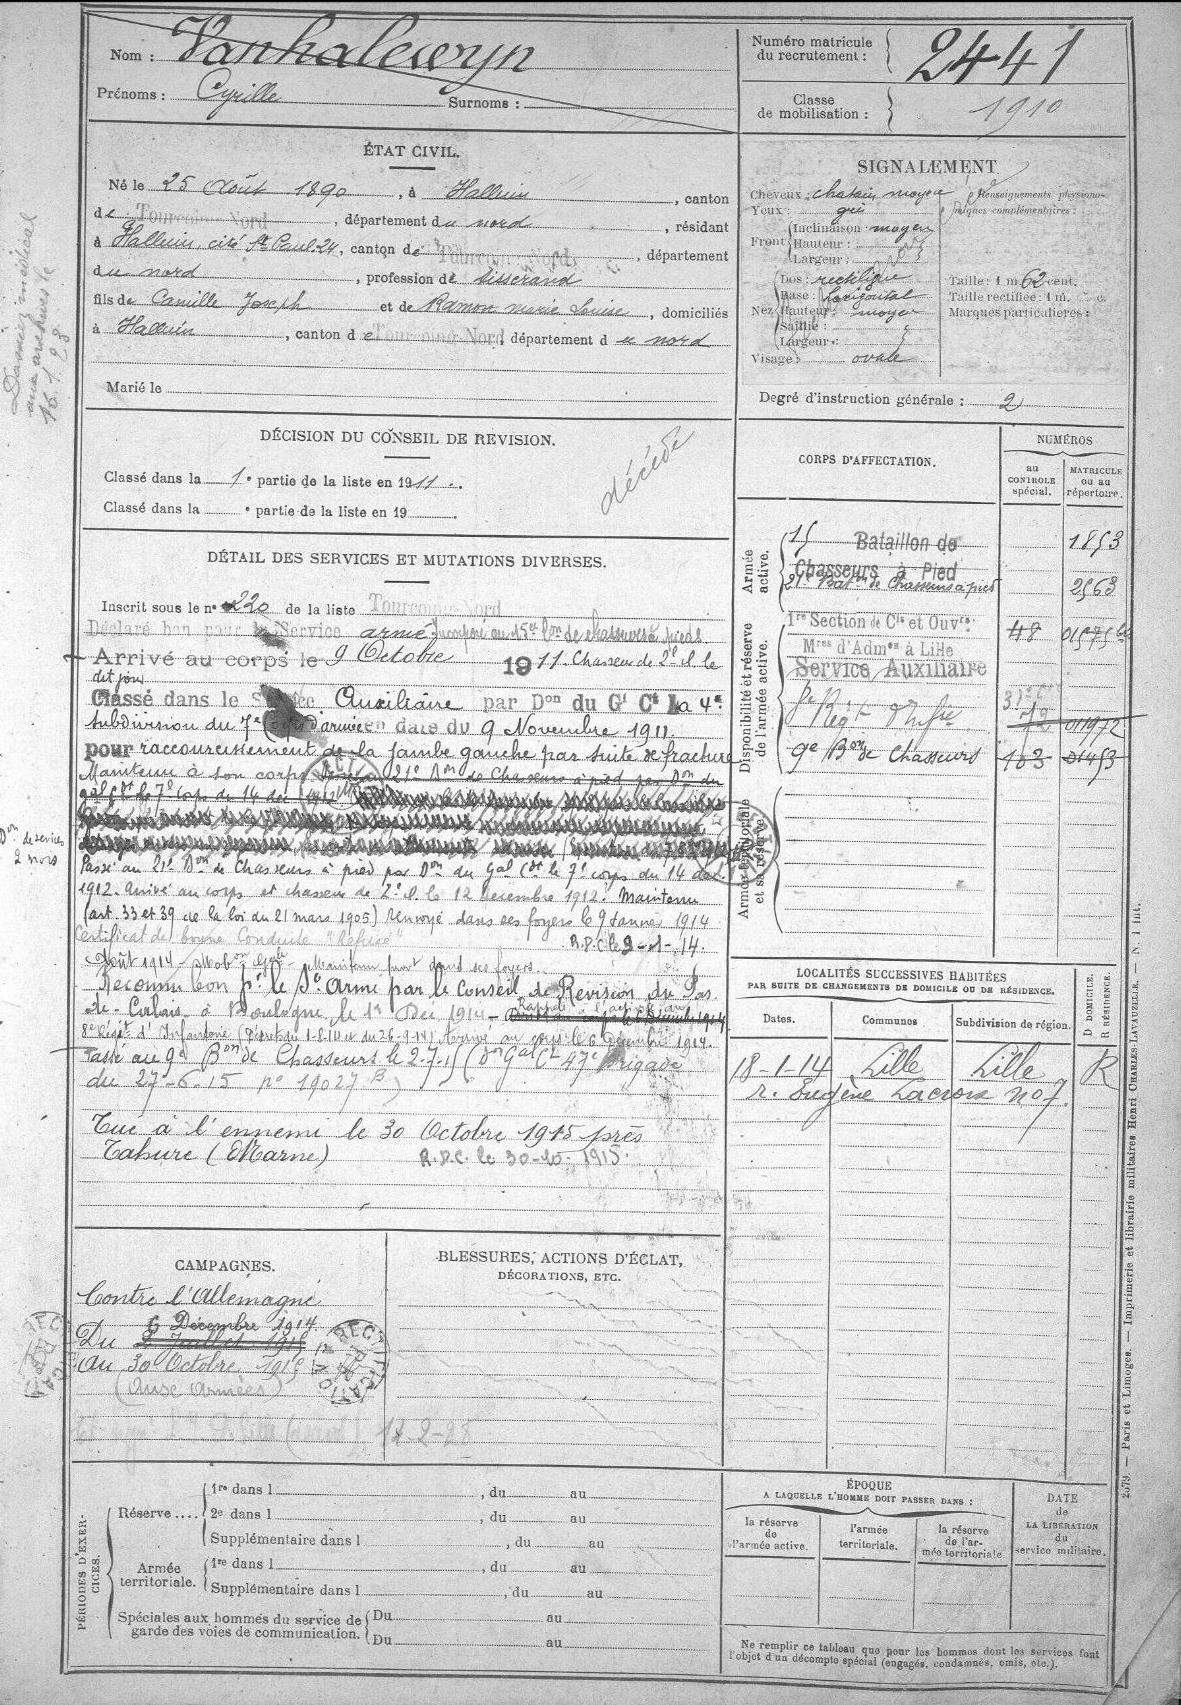 Nom : Vanhalewyn
Prénoms : Cyrille Surnoms :
Numéro matricule du recrutement : 2441
Classe de mobilisation : 1910
ÉTAT CIVIL.
Né le 25 Août 1890, à Halluin, canton
de Tourcoing-Nord, département du nord, résidant
à Halluin, cité St Paul 24, canton de Tourcoing Nord, département
du nord, profession de tisserand
fils de Camille Joseph et de Ramon marie Louise, domiciliés
à Halluin, canton de Tourcoing Nord, département du nord
Marié le
Dossier médical
aux archives le
16.1.28
SIGNALEMENT
Cheveux : chatain moyen
Yeux : gris
Front Inclinaison : moyen
Hauteur :
Largeur :
Nez Dos : rectiligne
Base : horizontal
Hauteur : moyen
Saillie :
Largeur :
Visage : ovale
Renseignements physionomiques complémentaires :
Taille : 1 m. 62 cent.
Taille rectifiée : 1 m. c.
Marques particulières :
Degré d'instruction générale : 2
DÉCISION DU CONSEIL DE REVISION.
Classé dans la 1e partie de la liste en 1911.
Classé dans la e partie de la liste en 19
décédé
CORPS D'AFFECTATION.
NUMÉROS
au CONTROLE spécial.
MATRICULE ou au répertoire.
Armée active.
15 Bataillon de Chasseurs à Pied 1853
21e Baton de Chasseurs à pied 2563
Disponibilité et réserve de l'armée active.
1re Section de Cis et Ouvrs Mres d'Admon à Lille 48
Service Auxiliaire
Regt d'Infie 72 01972
9e Bon de Chasseurs 103 01453
Armée territoriale et sa réserve.
DÉTAIL DES SERVICES ET MUTATIONS DIVERSES.
Inscrit sous le n° 220 de la liste Tourcoing-Nord
Déclaré bon pour le Service armé Incorporé au 15e Bon de chasseurs à pieds
Arrivé au corps le 9 Octobre 1911. Chasseur de 2e cl le
dit jour
Classé dans le Service Auxiliaire par Don du Gl Ct la 4e
subdivision du 7e Corps d'armée en date du 9 Novembre 1911
pour raccourcissement de la jambe gauche par suite de fracture
Maintenu à son corps
Don de services
2 mois
Passé au 21e Bon de Chasseurs à pied par Don du Gal Cdt le 7e corps du 14 dec.
1912. Arrivé au corps et chasseur de 2e cl le 12 décembre 1912. Maintenu
(art. 33 et 39 de la loi du 21 mars 1905) renvoyé dans ses foyers le 9 Janvier 1914
Certificat de bonne Conduite "Refusé" R.D.C. le 9-1-14.
Août 1914 - Mobon Gale - Maintenu provt dans ses foyers
Reconnu bon pr le Sce Armé par le Conseil de Revision du Pas
de-Calais à Boulogne le 1er Dec 1914 - Rappelé à l'activité au
8e Régit d'Infanterie (Décret du 1-8-14 et du 26-9-14) Arrivé au corps le 6 Décembre 1914.
Passé au 9e Bon de Chasseurs le 2-7-15 (Don Gal Ct 47e Brigade
du 27-6-15 n° 19027B)
Tué à l'ennemi le 30 Octobre 1915 près
Tahure (Marne) R.D.C. le 30-10-1915.
LOCALITÉS SUCCESSIVES HABITÉES
PAR SUITE DE CHANGEMENTS DE DOMICILE OU DE RÉSIDENCE.
Dates. Communes Subdivision de région. D DOMICILE. R RÉSIDENCE.
18-1-14 Lille Lille R
r. Eugène Lacroix n° 7.
CAMPAGNES.
Contre l'Allemagne
6 Décembre 1914
Du 2 Juillet 1915
Au 30 Octobre 1915
(Aux Armées)
RECTIFICATION
12-2-28
BLESSURES, ACTIONS D'ÉCLAT,
DÉCORATIONS, ETC.
PÉRIODES D'EXERCICES.
Réserve .... 1re dans l , du au
2e dans l , du au
Supplémentaire dans l , du au
Armée territoriale. 1re dans l , du au
Supplémentaire dans l , du au
Spéciales aux hommes du service de garde des voies de communication. Du au
Du au
ÉPOQUE
A LAQUELLE L'HOMME DOIT PASSER DANS :
la réserve de l'armée active.
l'armée territoriale.
la réserve de l'armée territoriale
DATE de LA LIBÉRATION du service militaire.
Ne remplir ce tableau que pour les hommes dont les services font
l'objet d'un décompte spécial (engagés, condamnés, omis, etc.).
2579. — Paris et Limoges. — Imprimerie et librairie militaires Henri CHARLES-LAVAUZELLE. — N. 1 int.